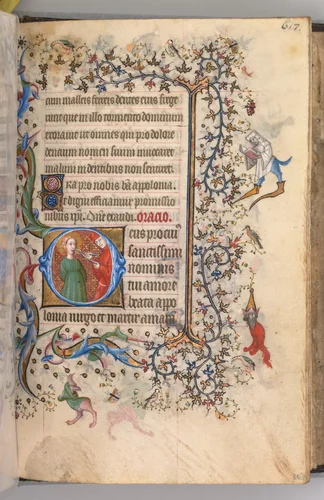 617.
cum malleis ferreis dentes eius frege
runt que in illo tormento dominum
orauit ut omnes qui pro dolore
dencium nomen suum inuocarent
malum in dentibus non sentirent.
Ora pro nobis bā apolonia.
Ut digni efficiamur promissio
nibus xpī. Dñe exaudi. Oracio.
eus pro cuius
sanctissimi
nominis
tui amore
beata appo
lonia uirgo et martir amara